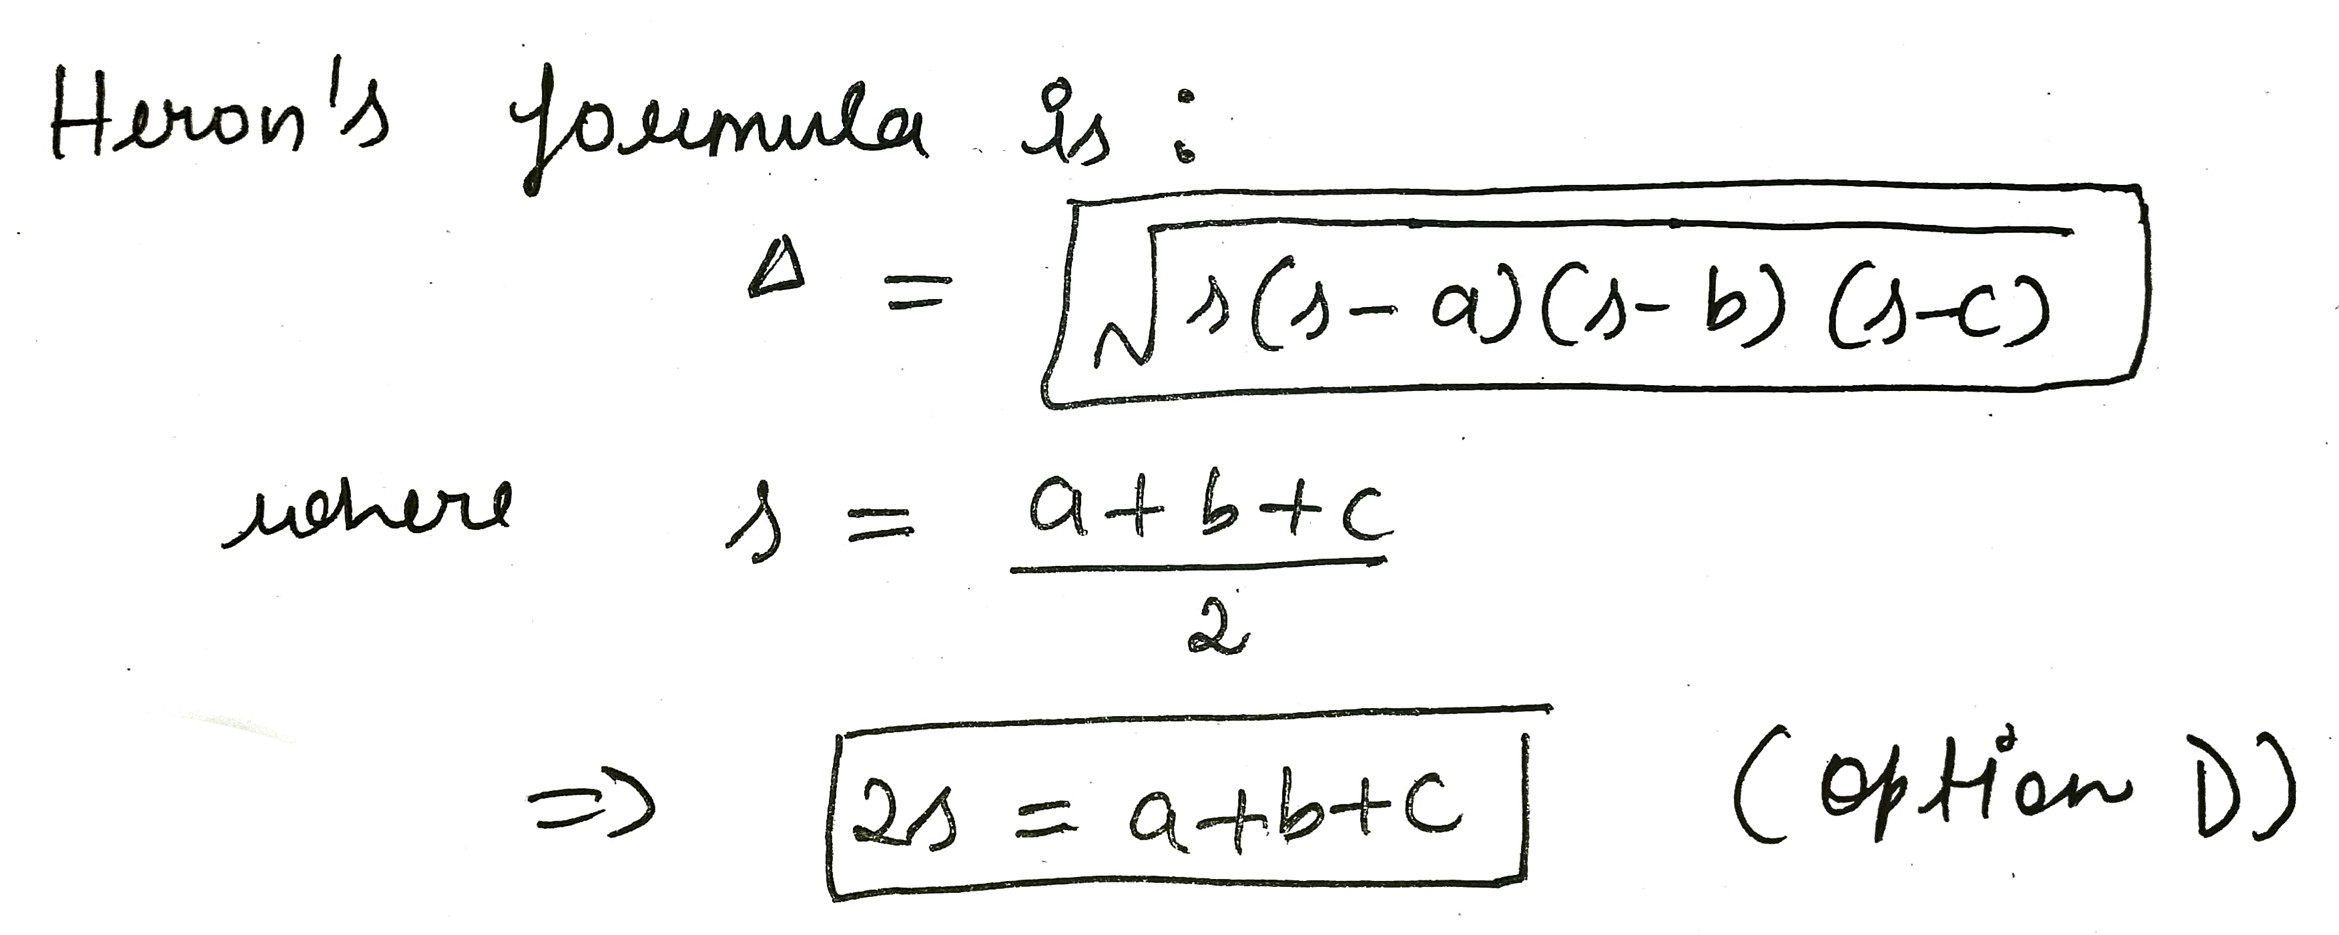 Heron's formula is :
Δ = √s(s-a)(s-b)(s-c)
where s = a+b+c
2
=> 2s = a+b+c (option D)